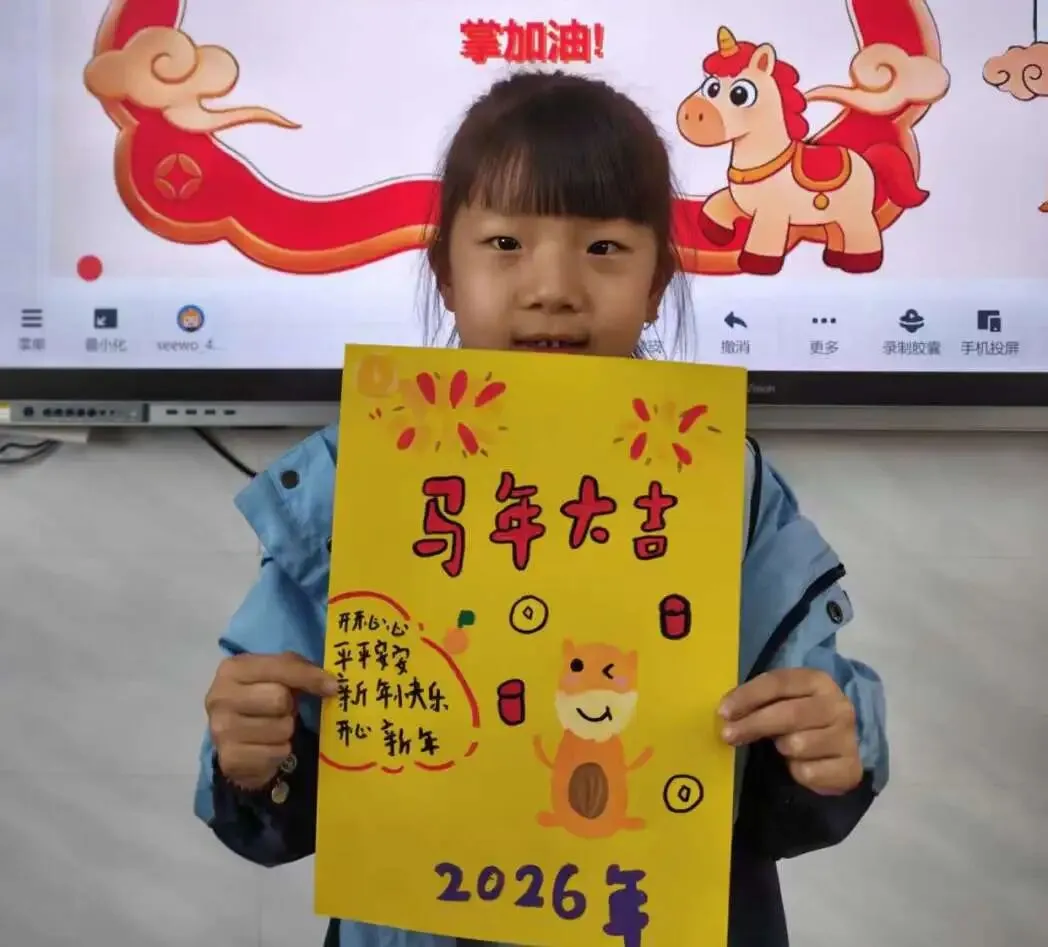 掌加油!
菜单
最小化
seewo_4...
撤消
更多
录制胶囊
手机投屏
马年大吉
开开心心
平平安安
新年快乐
开心新年
2026年